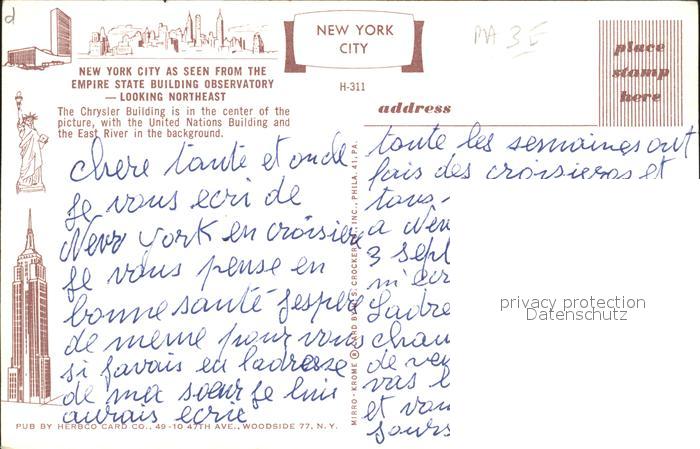 d
NEW YORK
CITY
MA 3E
place
stamp
here
NEW YORK CITY AS SEEN FROM THE
EMPIRE STATE BUILDING OBSERVATORY
— LOOKING NORTHEAST
H-311
The Chrysler Building is in the center of the
picture, with the United Nations Building and
the East River in the background.
address
chere tante et oncle
Je vous ecri de
New york en croisiere
Je vous pense en
bonne santé Jespere
de meme pour vous
si javais eu ladresse
de ma sœur Je lui
aurais ecrie
MIRRO-KROME ® CARD BY H. S. CROCKER CO., INC., PHILA. 41, PA.
toute les semaines ont
fais des croisieres et
tous
a New
3 sept
m'ecr
Ladre
chau
de ven
vas l
et vou
sours
privacy protection
Datenschutz
PUB BY HERBCO CARD CO., 49-10 47TH AVE., WOODSIDE 77, N. Y.